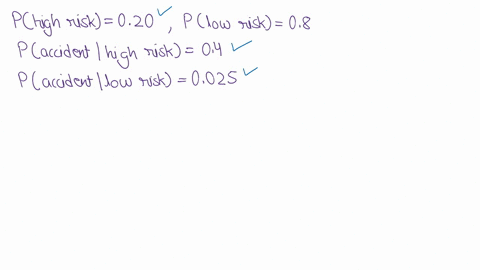 P(high risk) = 0.20 ✓, P(low risk) = 0.8
P(accident | high risk) = 0.4 ✓
P(accident | low risk) = 0.025 ✓